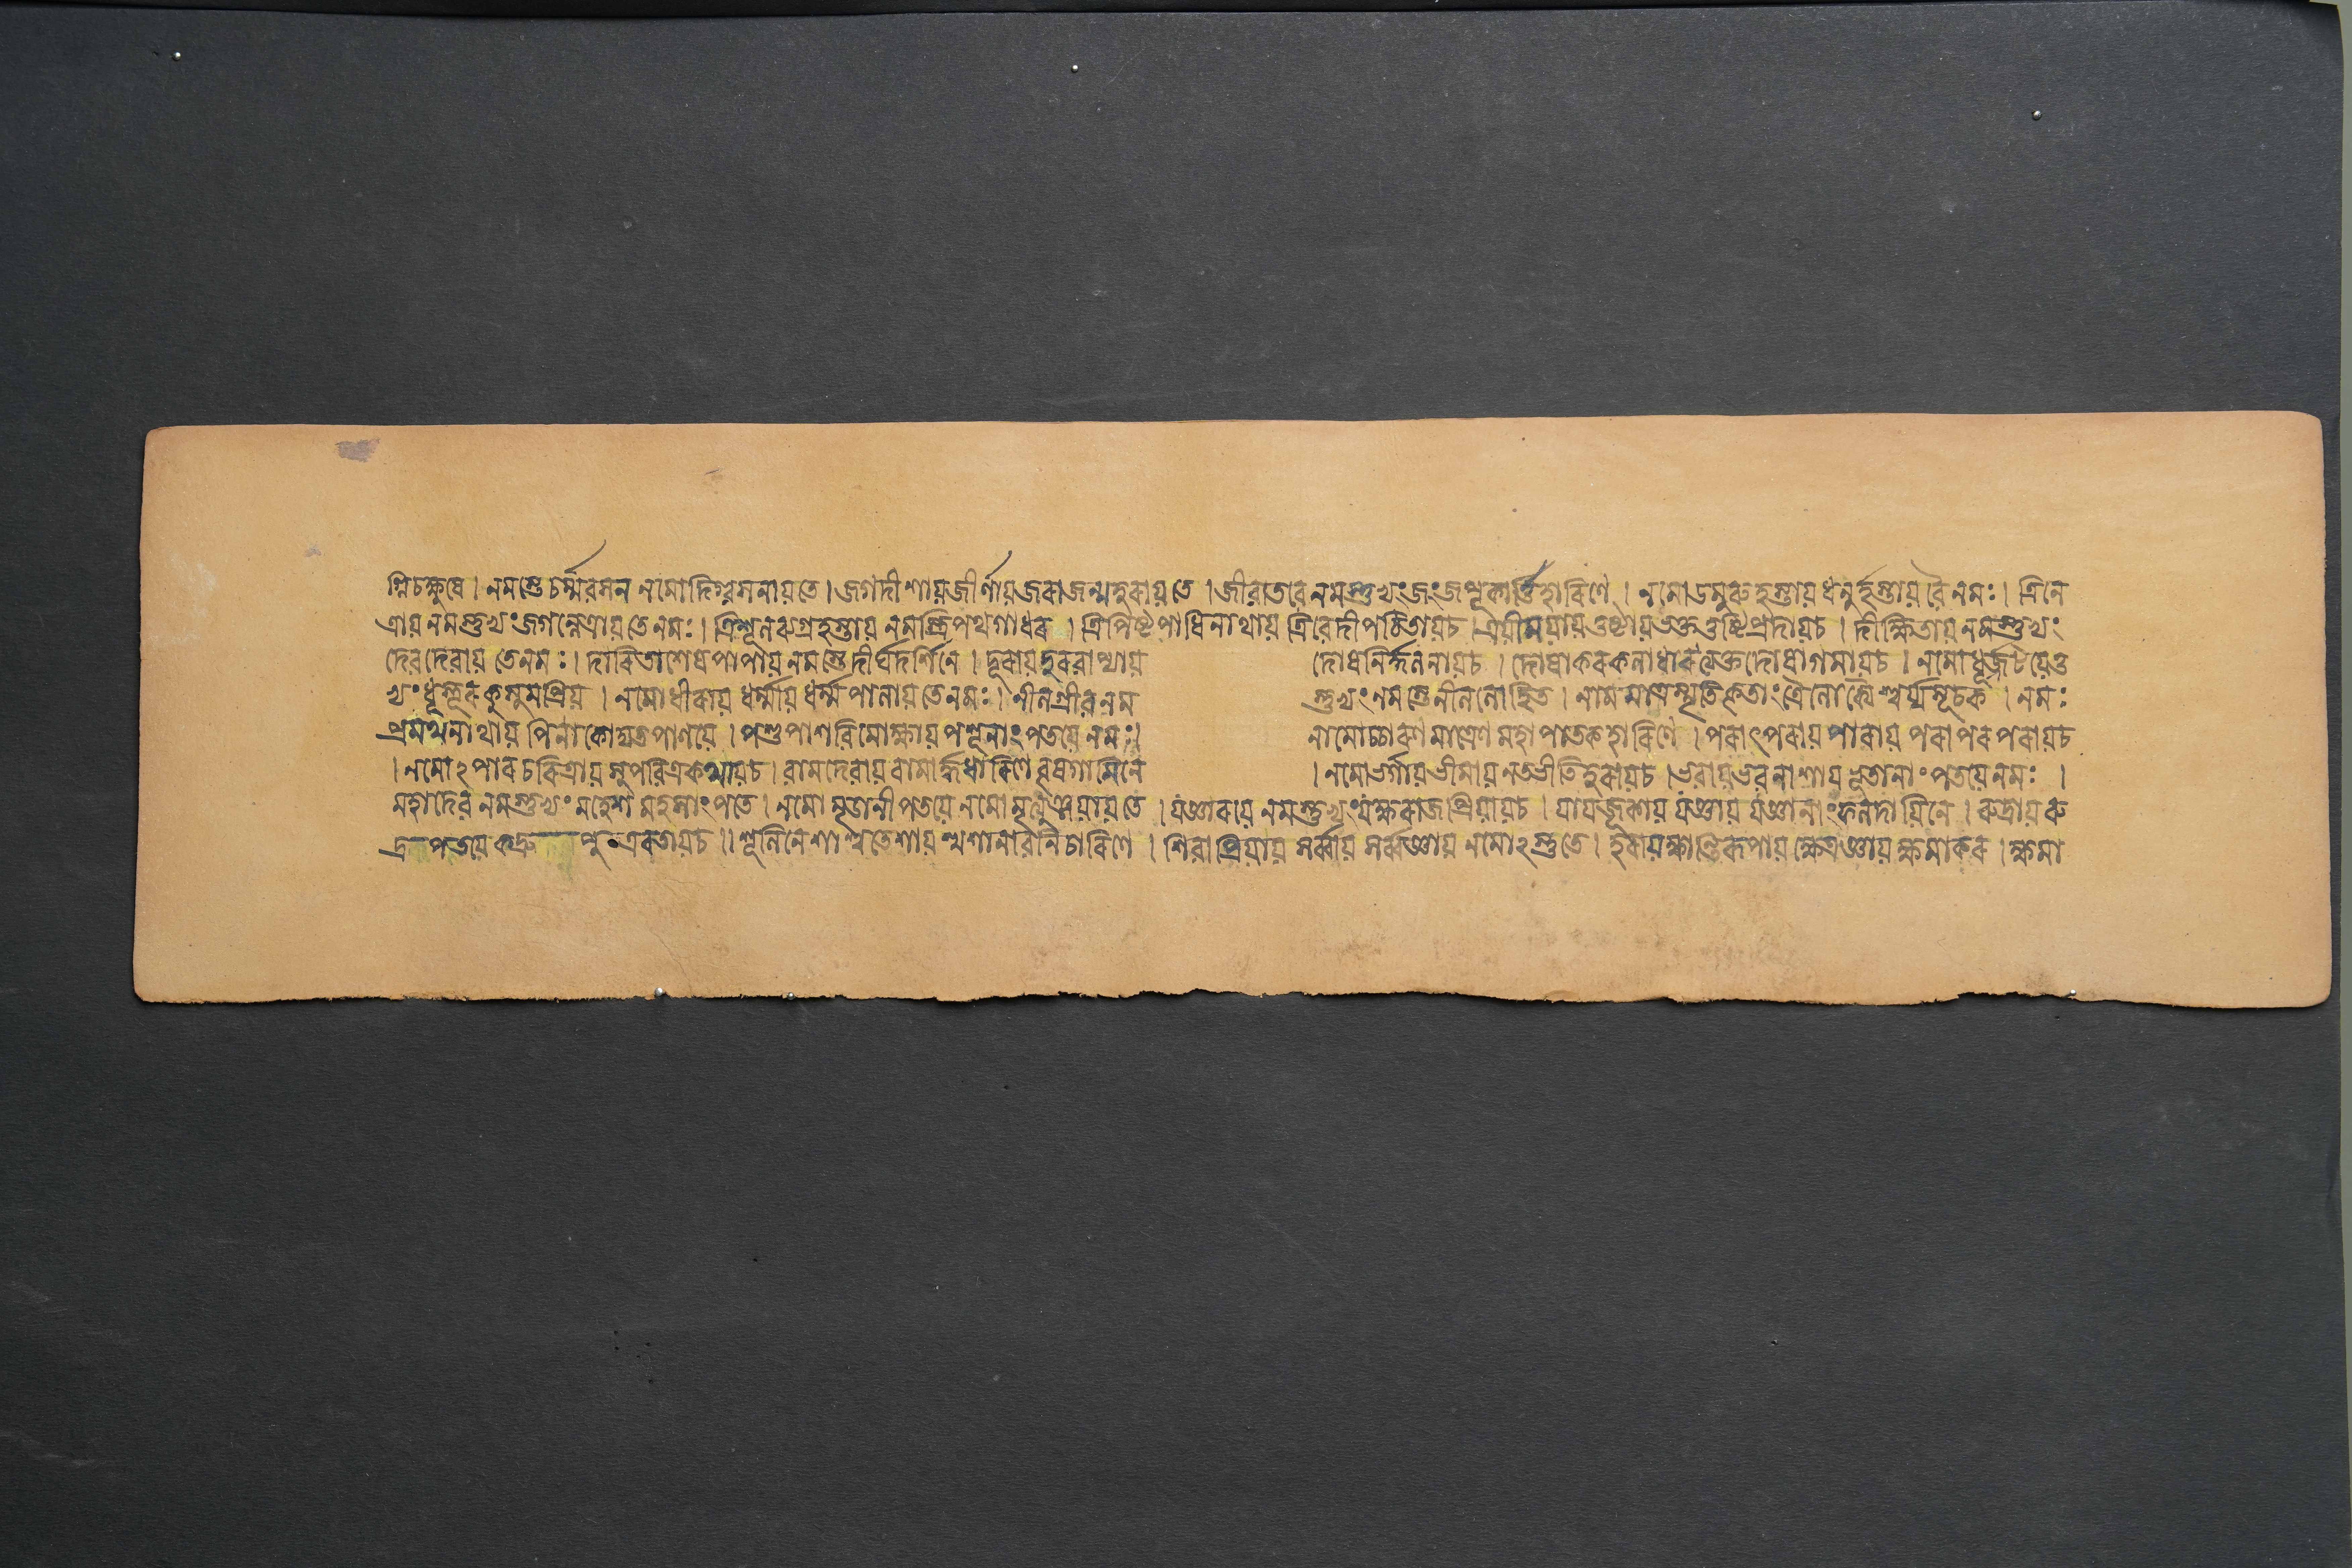 গ্নিচক্ষুষে । নমস্তেচর্ম্মৱসন নমোদিগ্বসনায়তে । জগদীশায়জীর্ণায়জৰাজন্মহৰায়তে । জীৱাতৱে নমস্তুভ্যং নমোডমৰুহস্তায় ধনুর্হস্তায় ৱৈ নমঃ । ত্রিনে
ত্রায় নমস্তুভ্যং জগন্নেত্রায় তে নমঃ । ত্রিশূলৰুগ্রহস্তায় নমস্ত্রিপথগাধৰ । ত্রিপিষ্টপাধিনাথায় ত্রিৱেদীপঠিতায়চ । ত্রয়ীময়ায়তুষ্টায়ভক্ততুষ্টিপ্রদায়চ । দীক্ষিতায় নমস্তুভ্যং
দেৱদেৱায় তেনমঃ । দাৰিতাশেষপাপায় নমস্তে দীর্ঘদর্শিনে । দূৰায়দুৰৱাপ্যায় দোষনির্দ্দলনায়চ । দোষাকৰকলাধাৰ ত্যক্তদোষাগমায়চ । নমোধূর্জটয়েতু
ভ্যং ধুস্তূৰকুসুমপ্রিয় । নমোধীৰায় ধর্ম্মায় ধর্ম্মপালায় তেনমঃ । নীলগ্রীৱনম স্তুভ্যং নমস্তেনীললোহিত । নামমাত্রস্মৃতিকৃতাং ত্রৈলোক্যৈশ্বর্য্যসূচক । নমঃ
প্রমথনাথায় পিনাকোদ্যতপাণয়ে । পশুপাশৱিমোক্ষায় পশূনাং পতয়ে নমঃ । নামোচ্চাৰণমাত্রেণ মহাপাতকহাৰিণে । পৰাৎপৰায় পাৰায় পৰাপৰপৰায়চ
। নমোঽপাৰচৰিত্রায় সুপৱিত্রকথায়চ । ৱামদেৱায় ৱামার্দ্ধধাৰিণে বৃষগামিনে । নমোভর্গায় ভীমায় নতভীতিহৰায়চ । ভৱায়ভৱনাশায় ভূতানাং পতয়েনমঃ ।
মহাদেৱ নমস্তুভ্যং মহেশ মহসাং পতে । নমো মৃড়ানীপতয়ে নমোমৃত্যুঞ্জয়ায়তে । যজ্ঞাৰয়ে নমস্তুভ্যং যক্ষৰাজপ্রিয়ায়চ । যাযজূকায় যজ্ঞায় যজ্ঞানাং ফলদায়িনে । ৰুদ্রায় ৰু
দ্রপতয়ে কদ্রু । শূলিনেশাশ্বতেশায় শ্মশানাৱনিচাৰিণে । শিৱাপ্রিয়ায় সর্ব্বায় সর্ব্বজ্ঞায় নমোঽস্তুতে । হৰায়ক্ষান্তিৰূপায় ক্ষেত্রজ্ঞায় ক্ষমাকৰ । ক্ষমা